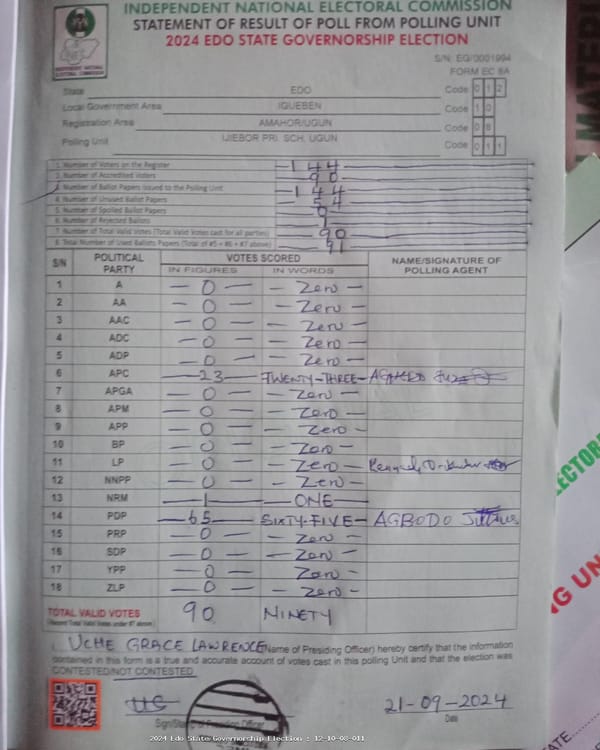 INDEPENDENT NATIONAL ELECTORAL COMMISSION
STATEMENT OF RESULT OF POLL FROM POLLING UNIT
2024 EDO STATE GOVERNORSHIP ELECTION
S/N: EG/0001994
FORM EC 8A
State EDO Code 0 1 2
Local Government Area IGUEBEN Code 1 0
Registration Area AMAHOR/UGUN Code 0 8
Polling Unit IJIEBOR PRI. SCH. UGUN Code 0 1 1
1. Number of Voters on the Register 144
2. Number of Accredited Voters 90
3. Number of Ballot Papers Issued to the Polling Unit 144
4. Number of Unused Ballot Papers 54
5. Number of Spoiled Ballot Papers
6. Number of Rejected Ballots
7. Number of Total Valid Votes (Total Valid Votes cast for all parties) 90
8. Total Number of Used Ballots Papers (Total of #5 + #6 + #7 above) 91
S/N POLITICAL PARTY VOTES SCORED NAME/SIGNATURE OF POLLING AGENT
IN FIGURES IN WORDS
1 A – 0 – – Zero –
2 AA – 0 – – Zero –
3 AAC – 0 – – Zero –
4 ADC – 0 – – Zero –
5 ADP – 0 – – Zero –
6 APC – 23 – TWENTY-THREE –
7 APGA – 0 – – Zero –
8 APM – 0 – – Zero –
9 APP – 0 – – Zero –
10 BP – 0 – – Zero –
11 LP – 0 – – Zero –
12 NNPP – 0 – – Zero –
13 NRM – 1 – – ONE –
14 PDP – 65 – SIXTY-FIVE – AGBODO
15 PRP – 0 – – Zero –
16 SDP – 0 – – Zero –
17 YPP – 0 – – Zero –
18 ZLP – 0 – – Zero –
TOTAL VALID VOTES 90 NINETY
(Record Total Valid Votes under #7 above)
I, UCHE GRACE LAWRENCE (Name of Presiding Officer) hereby certify that the information
contained in this form is a true and accurate account of votes cast in this polling Unit and that the election was
CONTESTED/NOT CONTESTED.
21-09-2024
Date
2024 Edo State Governorship Election : 12-10-08-011